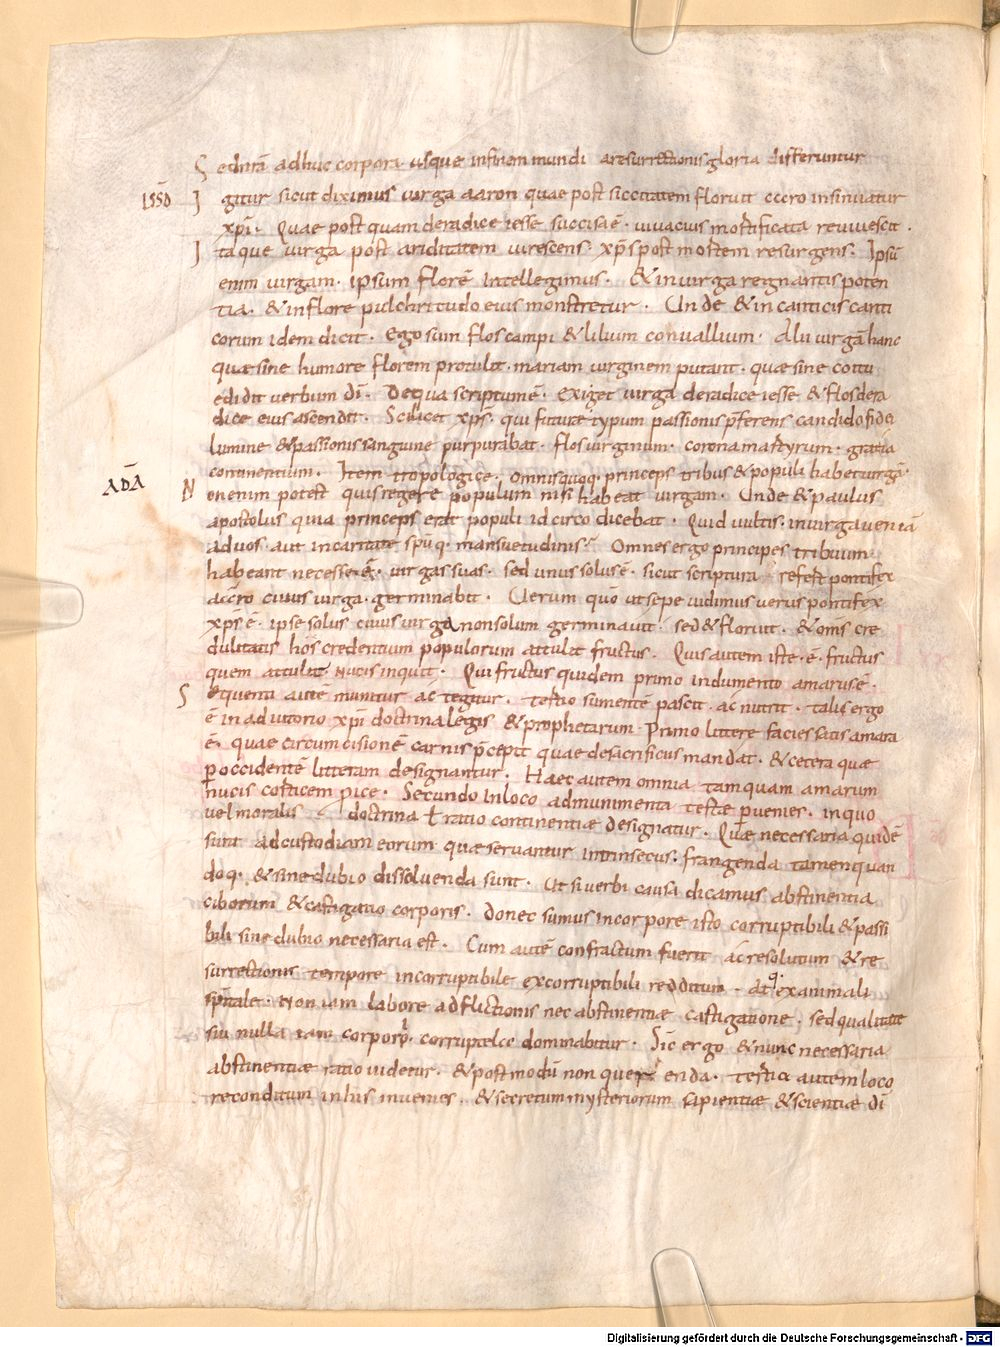 S ed nr̄ā adhuc corpora usque infinem mundi aresurrectionis gloria differuntur
ISSD̄ I gitur sicut diximus uirga aaron quae post siccitatem floruit
xp̄i · Quae post quam deradice iesse succisa ē · uiuacius mortificata reuiuescit ·
I ta que uirga post ariditatem uirescens · xp̄s post mortem resurgens · Ipsū
enim uirgam · ipsum florē intellegimus · & inuirga regnantis poten
tia · & inflore pulchritudo eius monstretur · Un de & in canticis canti
corum idem dicit · Ego sum flos campi & lilium conuallium · Alii uirgā hanc
quae sine humore florem protulit · mariam uirginem putant · quae sine coitu
edidit uerbum dī · Dequa scriptum ē · Exiget uirga deradice iesse & flos dera
dice eius ascendit · Scilicet xp̄s · qui futurae typum passionis p̄ferens candido fidei
lumine & passionis sanguine purpurabat · flos uirginum · corona martyrum · gratia
continentium · Item tropologice · omnisquoq· princeps tribus & populi habet uirgā ·
ADĀ N onenim potest quis regere populum nisi habeat uirgam · Unde & paulus
apostolus quia princeps erat populi id circo dicebat · Quid uultis · inuirga ueniā
ad uos · aut in caritate sp̄uq· mansuetudinis · Omnes ergo principes tribuum
habeant necesse · ē · uirgas suas · sed unus solus ē · sicut scriptura refert pontifex
cuius uirga · germinabit · Uerum quo ut sepe uidimus uerus pontifex
xp̄s ē · ipse solus cuius uirga non solum germinauit · sed & floruit · & om̄s cre
dulitatis hos credentium populorum attulit fructus · Quis autem iste · ē · fructus
quem attulit nucis inquit · Qui fructus quidem primo indumento amarus ē ·
S equenti autē munitur ac tegitur · Tertio sumentē pascit · ac nutrit · talis ergo
ē in adiutorio xp̄i doctrina legis & prophetarum · Primo littere facies satis amara
ē · quae circumcisionē carnis p̄cepit quae desacrificiis mandat · & cetera quae
p occidentē litteram designantur · Haec autem omnia tamquam amarum
nucis corticem pice · Secundo inloco ad munimenta testae puenies · inquo
uel moralis doctrina ł ratio continentiae designatur · Quae necessaria quidē
sunt ad custodiam eorum quae seruantur intrinsecus · frangenda tamen quan
doq· & sine dubio dissoluenda sunt · Ut si uerbi causa dicamus abstinentia
ciborum & castigatio corporis · donec sumus incorpore isto corruptibili & passi
bili sine dubio necessaria est · Cum autē confractum fuerit ac resolutum & re
surrectionis tempore incorruptibile excorruptibili redditum · atq· exanimali
sp̄itale · Non iam labore adflictionis nec abstinentiae castigatione · sed qualitate
sui nulla iam corporis · corruptelae dominabitur · Sic ergo & nunc necessaria
abstinentiae ratio uidetur · & post modū non quer enda · tertio autem loco
reconditum inhis inuenies · & secretum mysteriorum sapientiae & scientiae dī
Digitalisierung gefördert durch die Deutsche Forschungsgemeinschaft - DFG